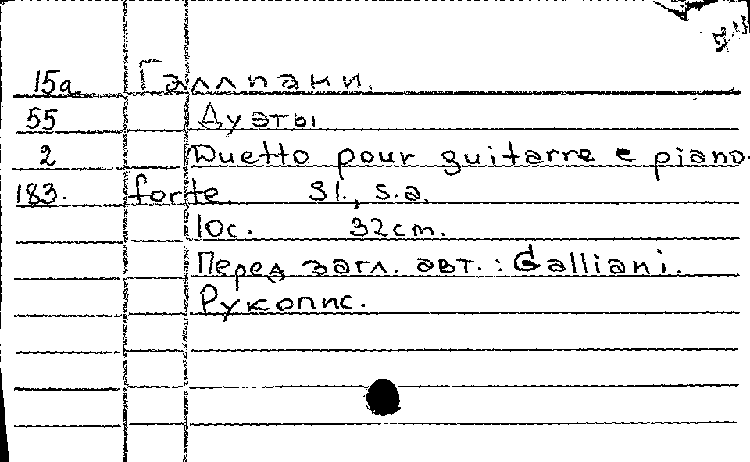 15a Галлиани.
55 Дуэты
2 Duetto pour guitarre e piano-
183. forte. Sl., s.a.
10с. 32cm.
Перед загл. авт.: Galliani.
Рукопис.